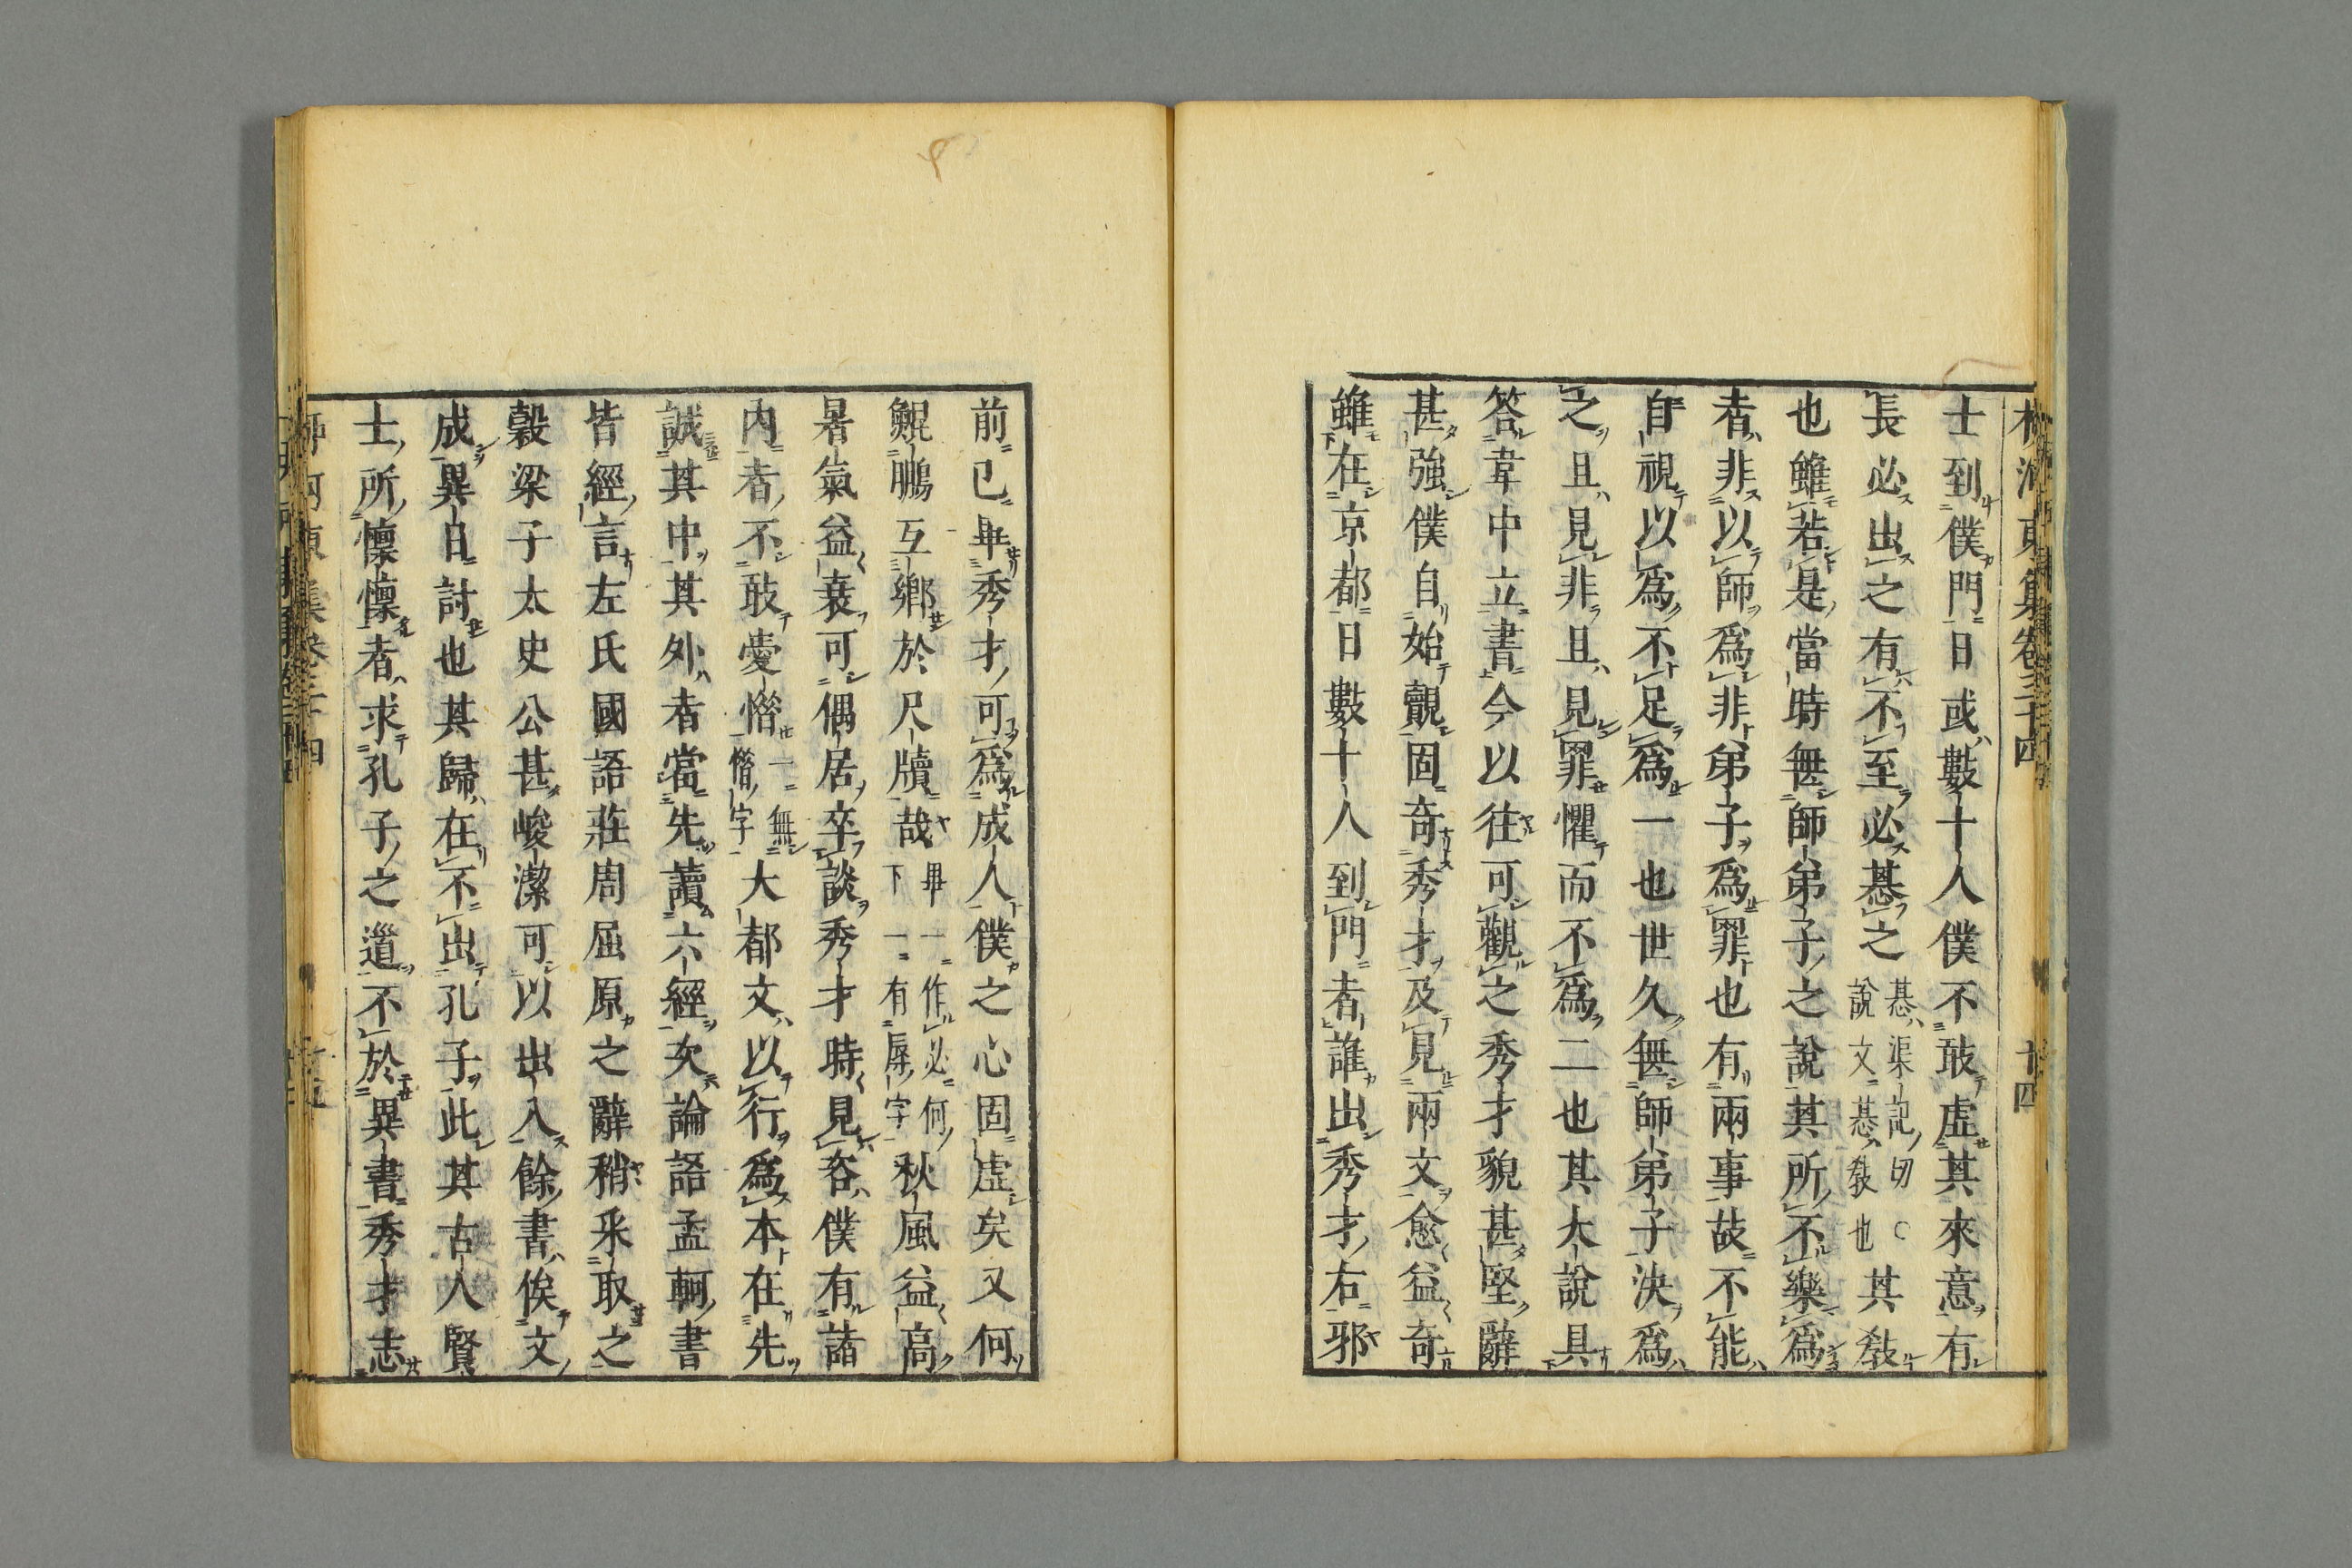 柳河東集卷三十四 廿四
士到僕門日或數十人僕不敢虛其來意有
長必出之有不至必惎之惎渠記切○說文惎教也其教
也雖若是當時無師弟子之說其所不樂爲
者非以師爲非弟子爲罪也有兩事故不能
自視以爲不足爲一也世久無師弟子決爲
之且見非且見罪懼而不爲二也其大說具
答韋中立書今以往可觀之秀才貌甚堅辭
甚強僕自始覿固奇秀才及見兩文愈益奇
雖在京都日數十人到門者誰出秀才右邪
前已畢秀才可爲成人僕之心固虛矣又何
鯤鵬互鄉於尺牘哉畢一作必何下一有辱字秋風益高
暑氣益衰可偶居卒談秀才時見咨僕有諸
內者不敢愛惜一無惜字大都文以行爲本在先
誠其中其外者當先讀六經次論語孟軻書
皆經言左氏國語莊周屈原之辭稍采取之
穀梁子太史公甚峻潔可以出入餘書俟文
成異日討也其歸在不出孔子此其古人賢
士所懍懍者求孔子之道不於異書秀才志
柳河東集卷三十四